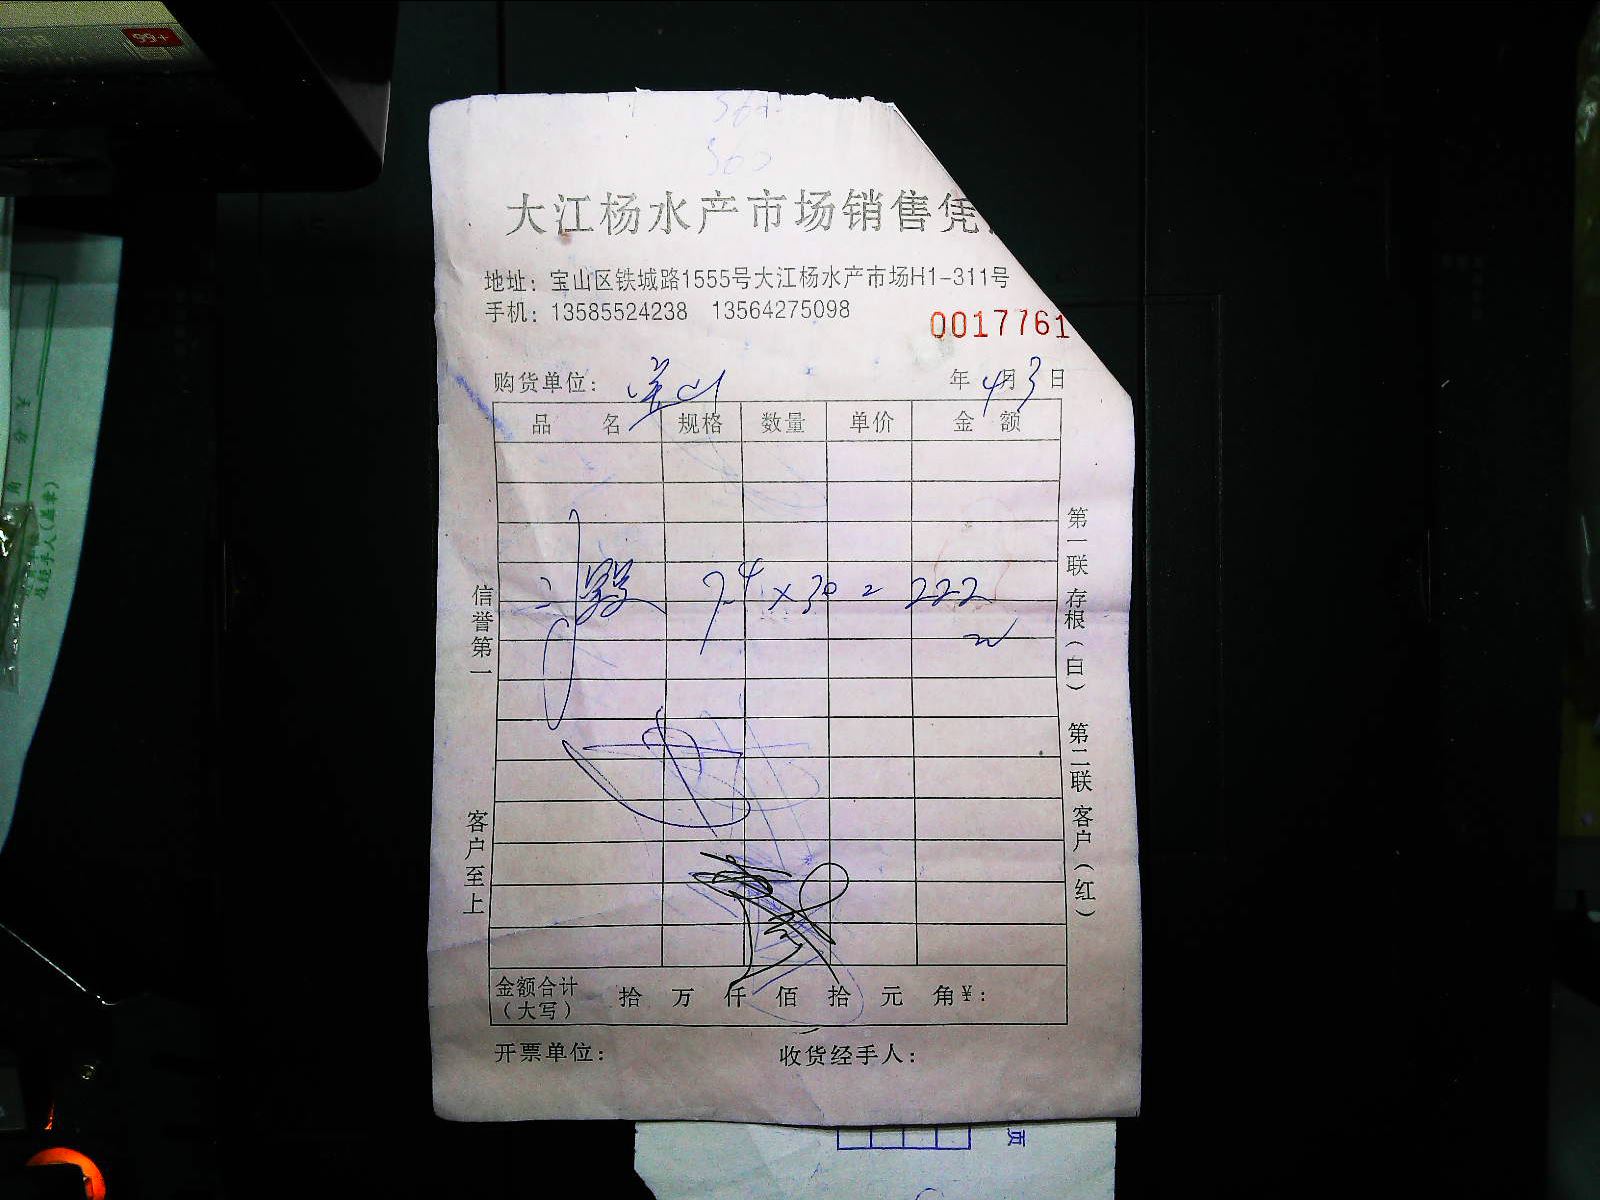 大江杨水产市场销售凭
地址：宝山区铁城路1555号大江杨水产市场H1-311号
手机：13585524238 13564275098
0017761
购货单位：宝山 年4月3日
品名 规格 数量 单价 金额
7.4×30=222
信誉第一 客户至上
第一联存根（白） 第二联客户（红）
金额合计（大写） 拾 万 仟 佰 拾 元 角¥：
开票单位： 收货经手人：
99+
页